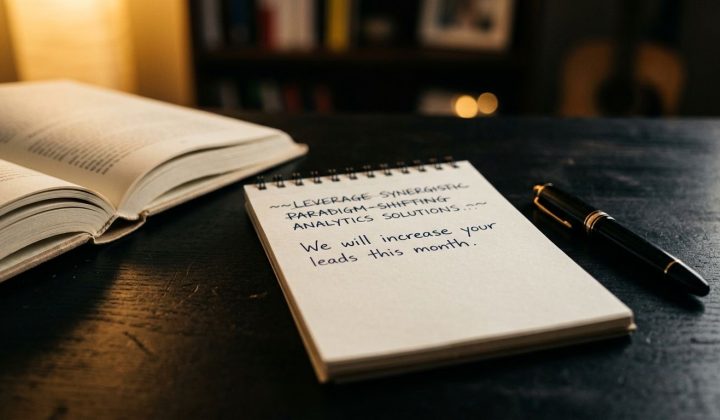 ~~LEVERAGE SYNERGISTIC
PARADIGM-SHIFTING
ANALYTICS SOLUTIONS...~
We will increase your
leads this month.